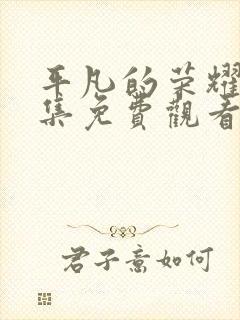 平凡的荣耀
集免費觀看
君子意如何